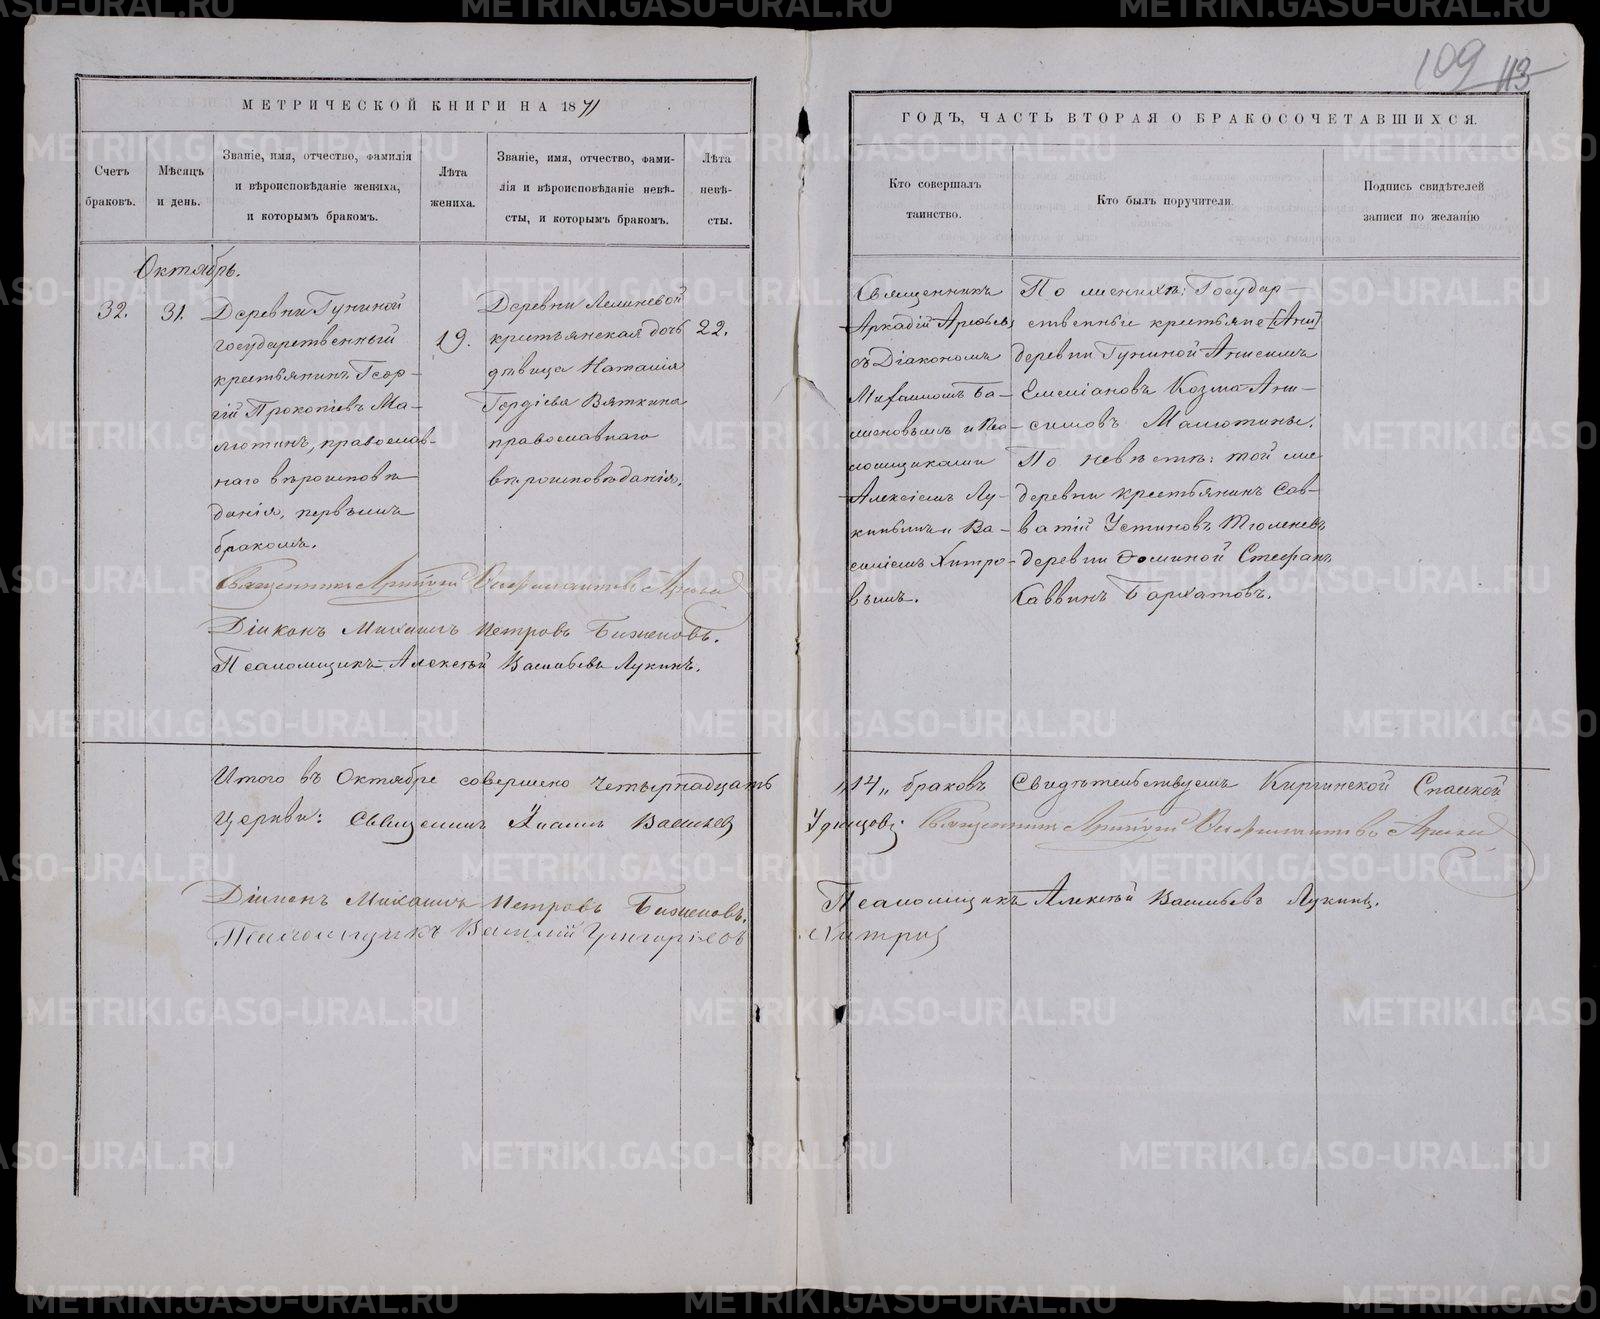 109 113
МЕТРИЧЕСКОЙ КНИГИ НА 1871
ГОДЪ, ЧАСТЬ ВТОРАЯ О БРАКОСОЧЕТАВШИХСЯ.
Счетъ
браковъ.
Мѣсяцъ
и день.
Званіе, имя, отчество, фамилія
и вѣроисповѣданіе жениха,
и которымъ бракомъ.
Лѣта
жениха.
Званіе, имя, отчество, фами-
лія и вѣроисповѣданіе невѣ-
сты, и которымъ бракомъ.
Лѣта
невѣ-
сты.
Кто совершалъ
таинство.
Кто былъ поручители.
Подпись свидѣтелей
записи по желанію
Октябрь.
32.
31.
Деревни Гуниной
государственный
крестьянинъ Геор-
гій Прокопіевъ Ма-
лютинъ, православ-
наго вѣроисповѣ-
данія, первымъ
бракомъ.
19.
Деревни
крестьянская дочь
дѣвица Наталія
Гордіева Вяткина
православнаго
вѣроисповѣданія.
22.
Священникъ
Аркадій
съ Діакономъ
Михаиломъ Ба-
женовымъ и Пса-
ломщиками
Алексіемъ Лу-
кинымъ и Ва-
силіемъ Хитро-
вымъ.
По женихѣ: Государ-
ственные крестьяне [Ани]
деревни Гуниной Анисимъ
Емеліановъ Козма Ани-
симовъ Малютины.
По невѣстѣ: той же
деревни крестьянинъ Сав-
ватій Устиновъ Тюленевъ
деревни Фоминой Стефанъ
Саввинъ Бархатовъ.
Священникъ Аркадій
Діаконъ Михаилъ Петровъ Баженовъ.
Псаломщикъ Алексѣй Васильевъ Лукинъ.
Итого въ Октябрѣ совершено четырнадцать „14„ браковъ Свидѣтельствуемъ Киргинской Спасской
Церкви: Священник Іоаннъ Васильев Удинцовъ. Священникъ Аркадій
Діаконъ Михаилъ Петровъ Баженовъ. Псаломщикъ Алексѣй Васильевъ Лукинъ.
Псаломщикъ Василій Григоріевъ Хитров
METRIKI.GASO-URAL.RU